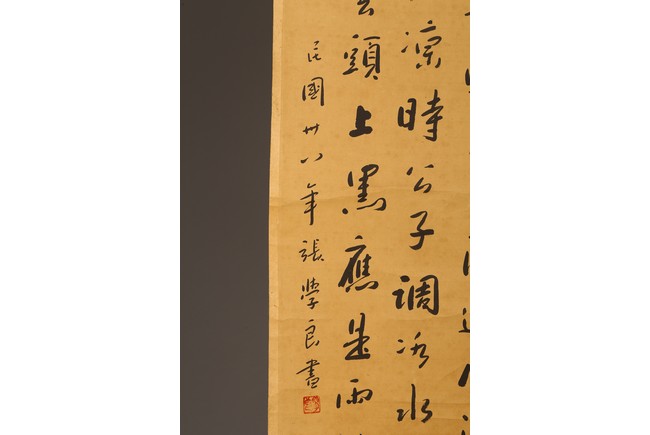 涼時公子調冰水
頭上黑應是雨
民國卅八年張學良書